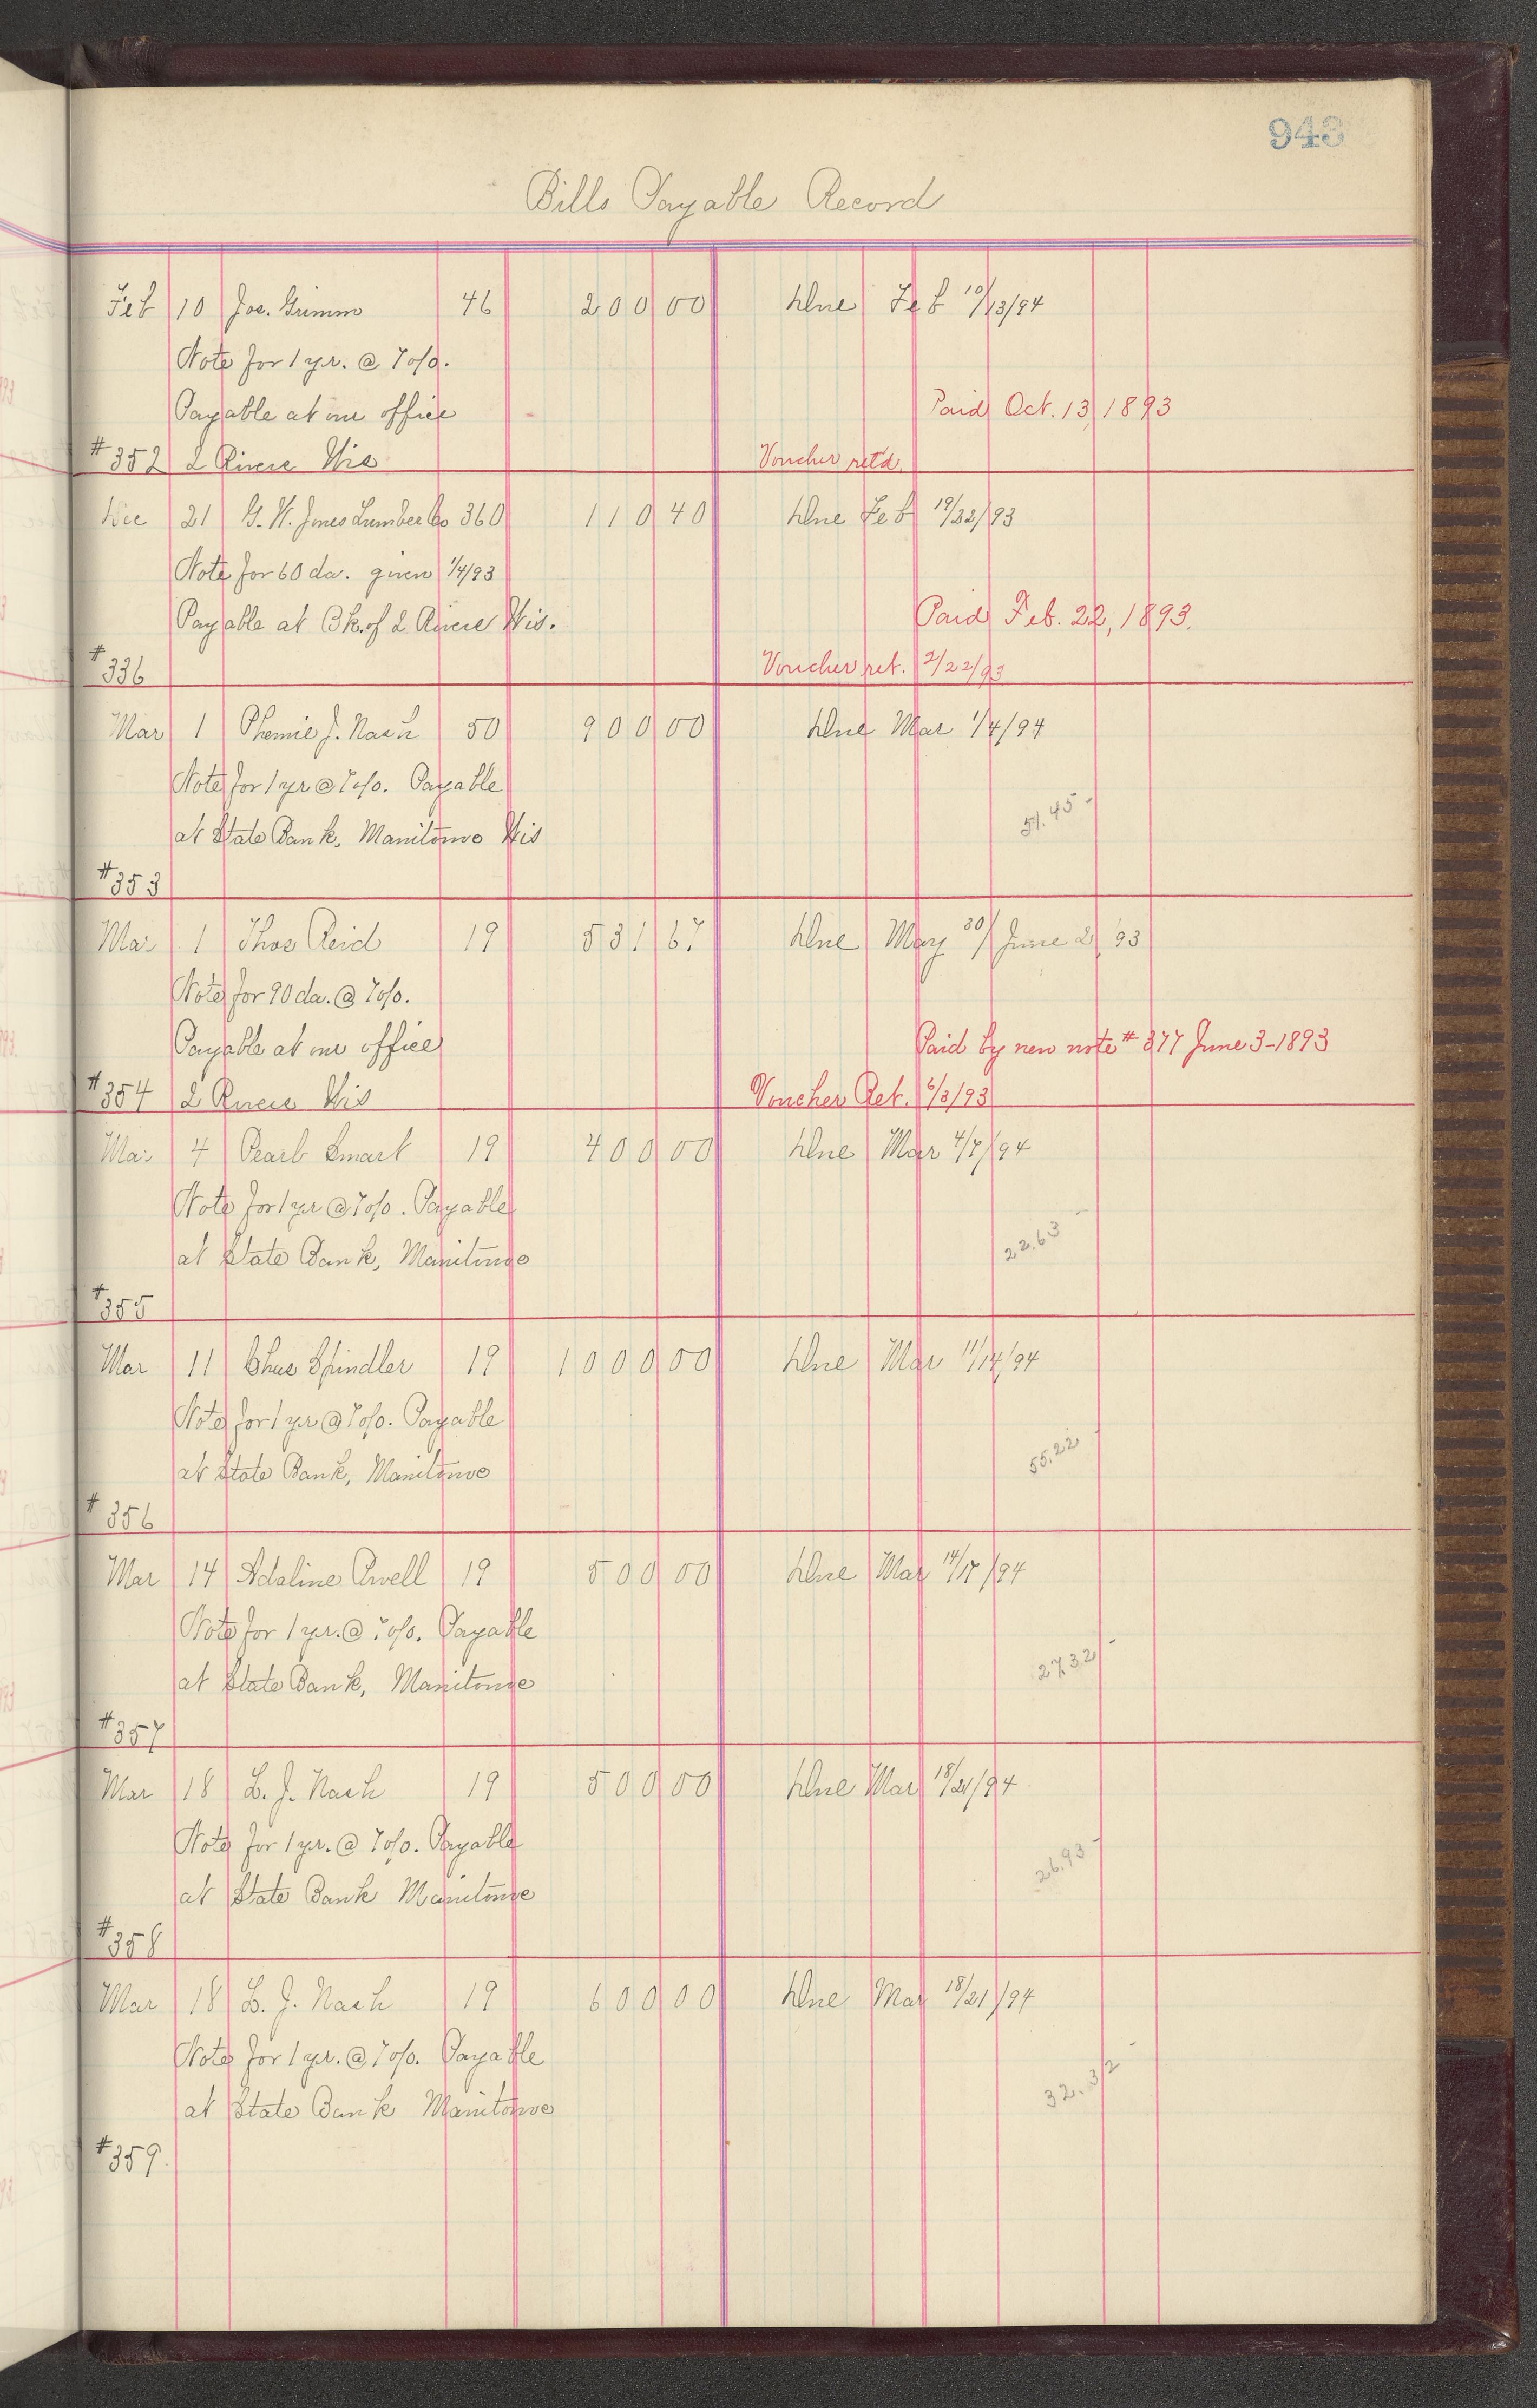 943
Bills Payable Record
Feb 10 Joe. Grimm 46 200 00 Due Feb 10/13/94
Note for 1 yr. @ 7 o/o.
Payable at our office Paid Oct. 13, 1893
#352 2 Rivers Wis Voucher retd.
Dec 21 G. W. Jones Lumber Co 360 110 40 Due Feb 19/22/93
Note for 60 da. given 1/4/93
Payable at Bk. of 2 Rivers Wis. Paid Feb. 22, 1893.
#336 Voucher ret. 2/22/93
Mar 1 Phemie J. Nash 50 900 00 Due Mar 1/4/94
Note for 1 yr @ 7 o/o. Payable
at State Bank, Manitowoc Wis 51.45-
#353
Mar 1 Thos Reid 19 531 67 Due May 30/June 2/93
Note for 90 da. @ 7 o/o.
Payable at our office Paid by new note #377 June 3-1893
#354 2 Rivers Wis Voucher Ret. 6/3/93
Mar 4 Pearl Smart 19 400 00 Due Mar 4/7/94
Note for 1 yr @ 7 o/o. Payable
at State Bank, Manitowoc 22.63-
#355
Mar 11 Chas Spindler 19 1000 00 Due Mar 11/14/94
Note for 1 yr @ 7 o/o. Payable
at State Bank, Manitowoc 55.22-
#356
Mar 14 Adaline 19 500 00 Due Mar 14/17/94
Note for 1 yr. @ 7 o/o. Payable
at State Bank, Manitowoc 27.32-
#357
Mar 18 L. J. Nash 19 500 00 Due Mar 18/21/94
Note for 1 yr. @ 7 o/o. Payable
at State Bank Manitowoc 26.93-
#358
Mar 18 L. J. Nash 19 600 00 Due Mar 18/21/94
Note for 1 yr. @ 7 o/o. Payable
at State Bank Manitowoc 32.32-
#359.